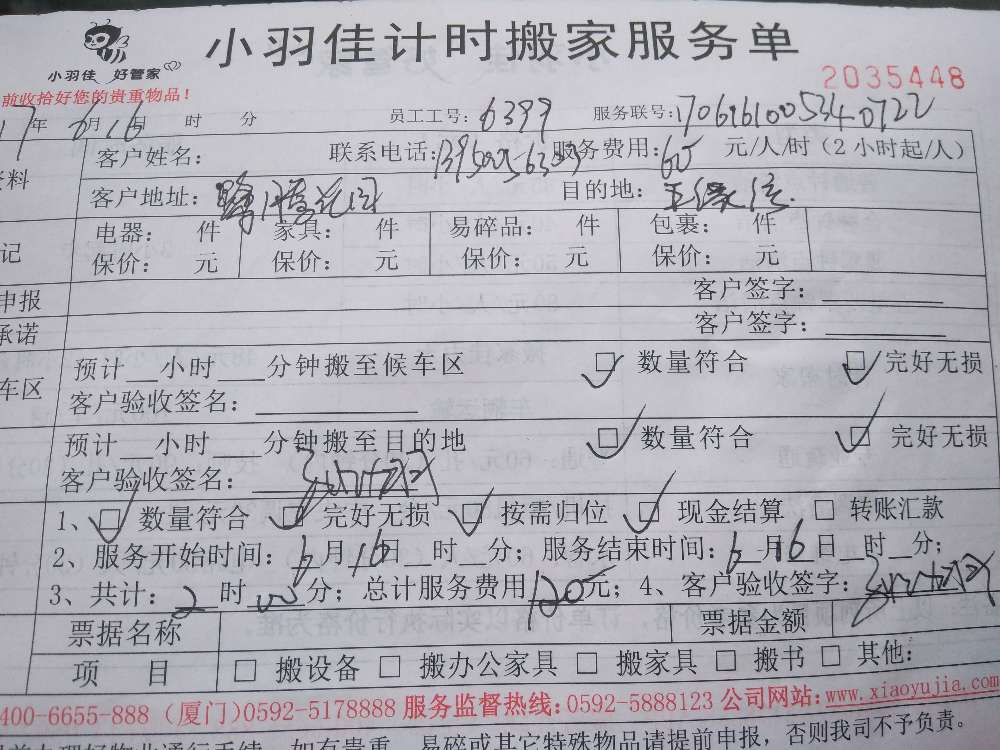 小羽佳计时搬家服务单
小羽佳 好管家
前收拾好您的贵重物品！
2035448
17年6月16日 时 分 员工工号：6399 服务联号：
客户姓名： 联系电话： 服务费用：60 元/人/时（2小时起/人）
资料
客户地址： 目的地：
电器： 件 家具： 件 易碎品： 件 包裹： 件
记
保价： 元 保价： 元 保价： 元 保价： 元
申报 客户签字：
承诺 客户签字：
预计__小时___分钟搬至候车区 ☑ 数量符合 ☑ 完好无损
车区
客户验收签名：
预计 小时 分钟搬至目的地 ☑ 数量符合 ☑ 完好无损
客户验收签名：
1、☑ 数量符合 ☑ 完好无损 ☑ 按需归位 ☑ 现金结算 □ 转账汇款
2、服务开始时间：6月16日__时__分；服务结束时间：6月16日__时__分；
3、共计：2时00分；总计服务费用120元；4、客户验收签字：
票据名称 票据金额
项 目 □ 搬设备 □ 搬办公家具 □ 搬家具 □ 搬书 □ 其他：
400-6655-888（厦门）0592-5178888 服务监督热线：0592-5888123 公司网站：www.xiaoyujia.com
如有贵重、易碎或其它特殊物品请提前申报，否则我司不予负责。